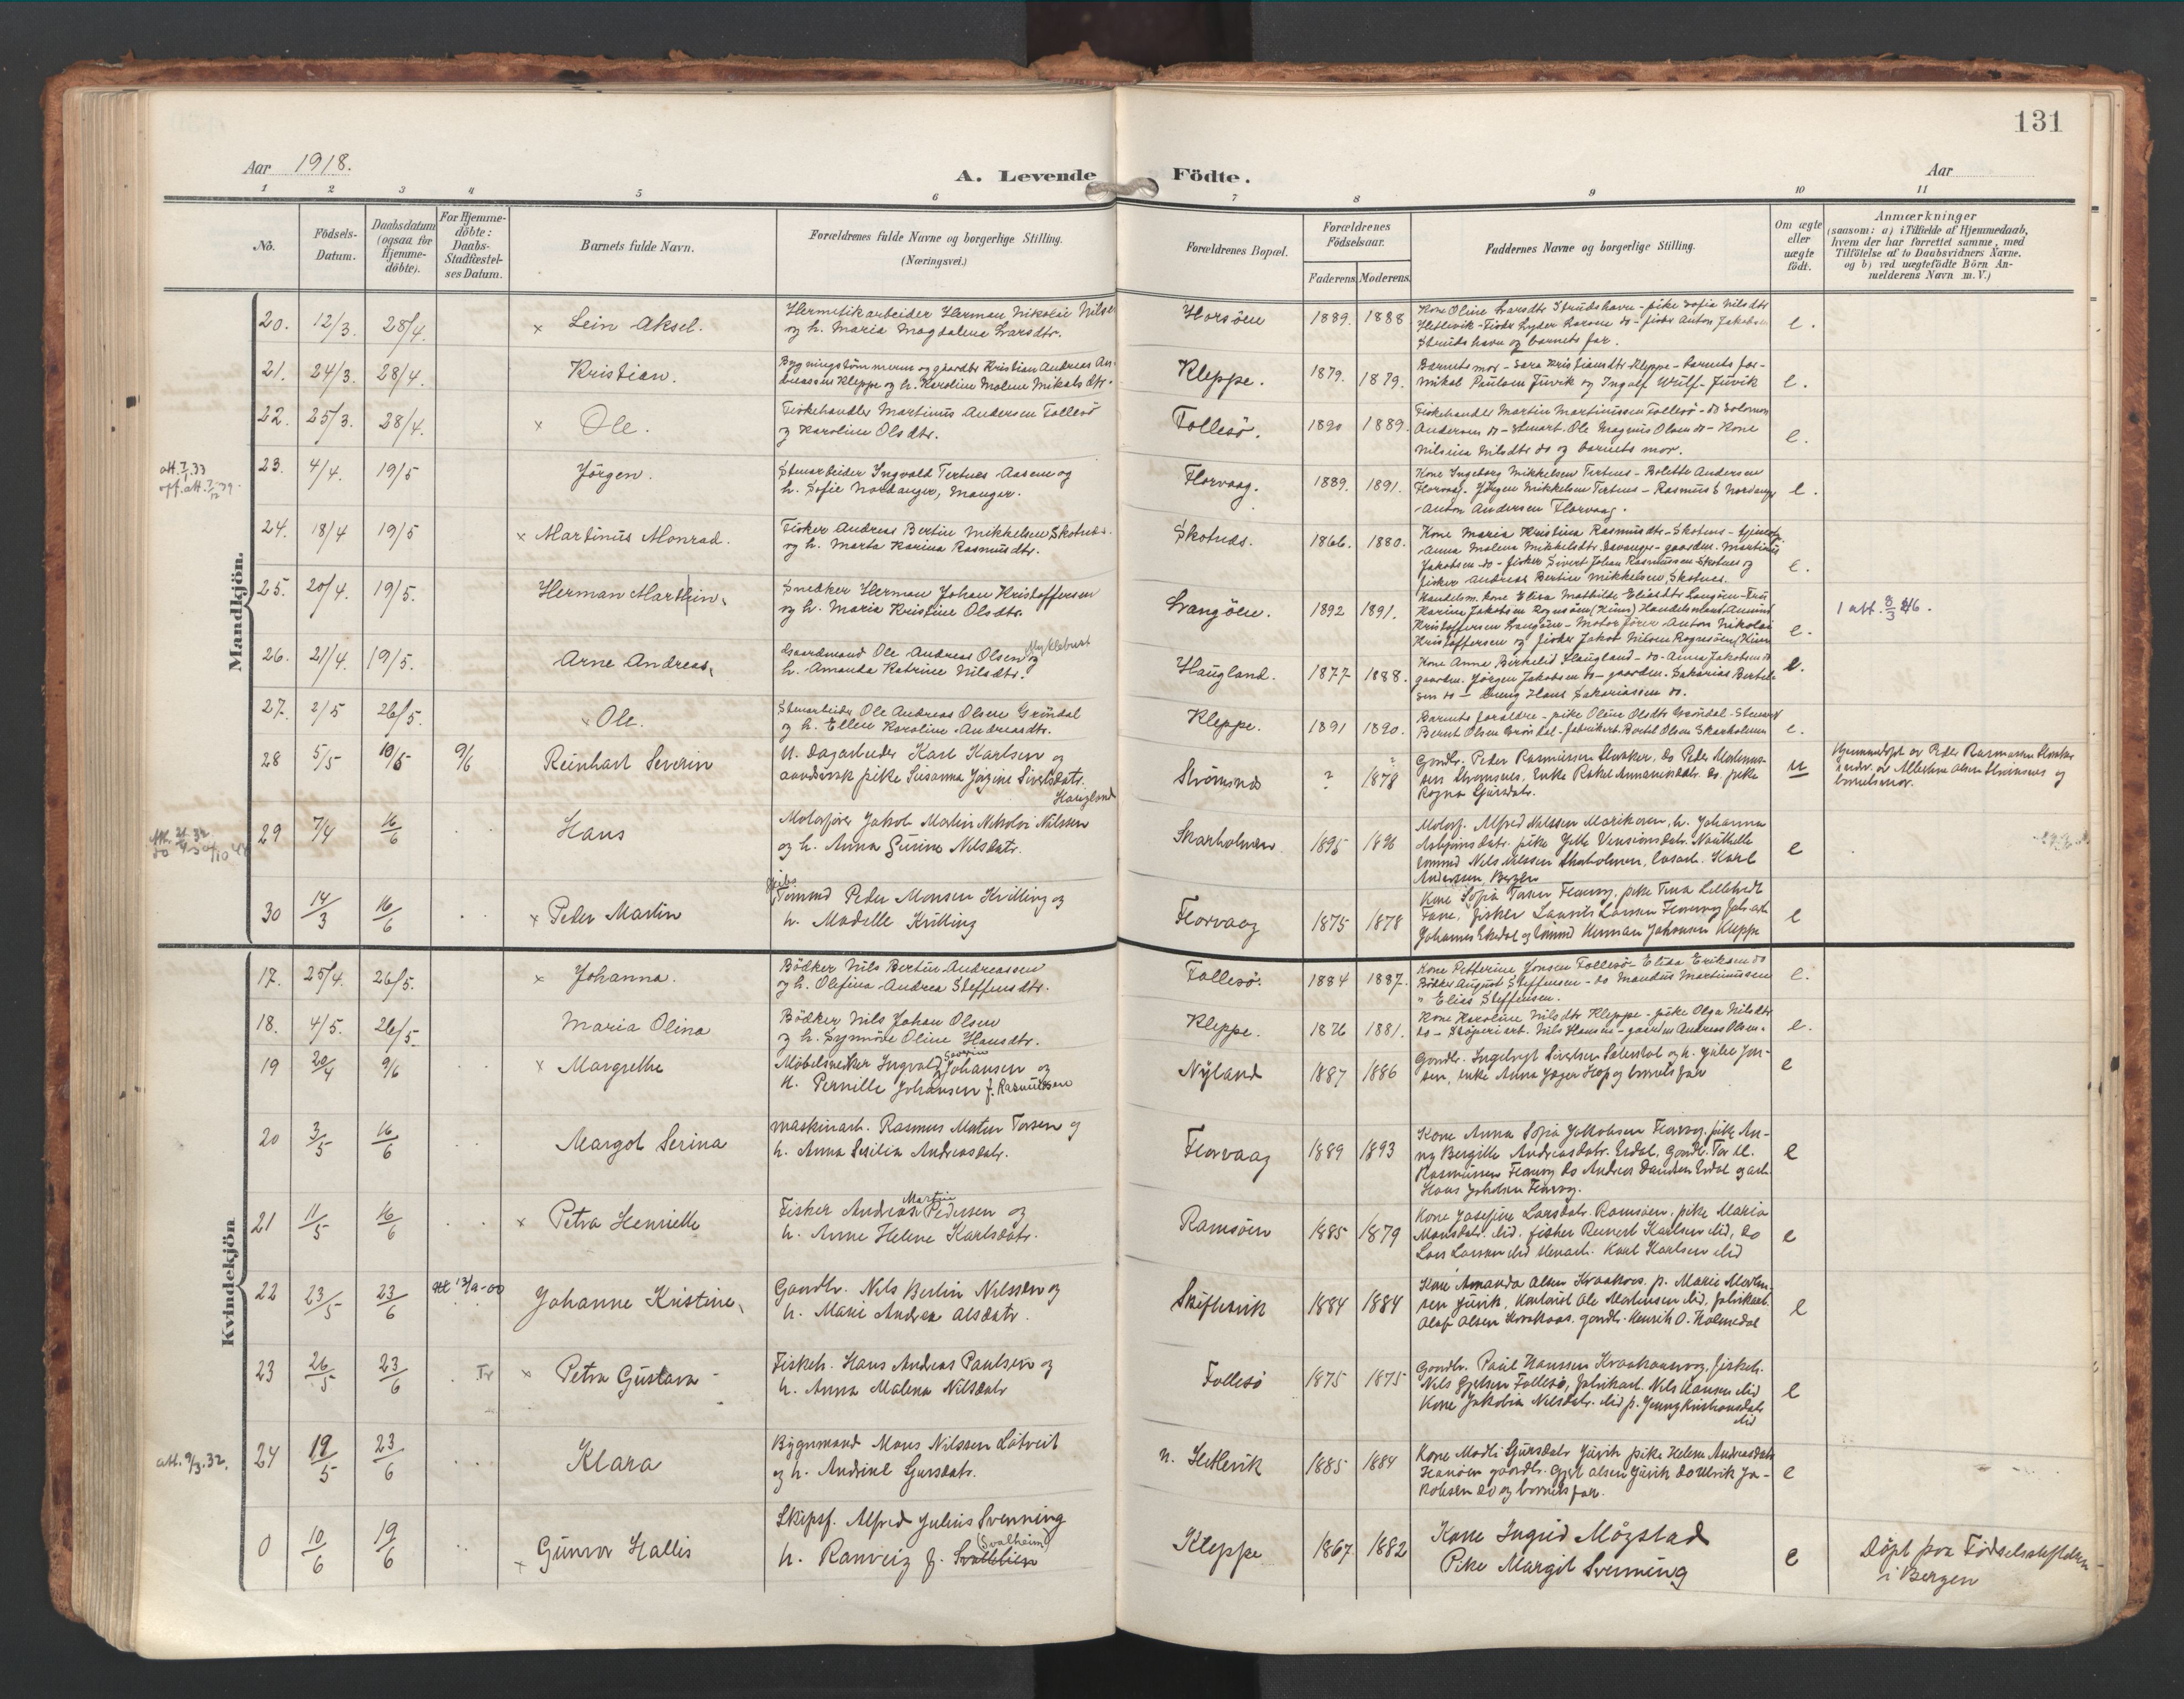 131
Aar 1918.
A. Levende Födte.
Aar
1 2 3 4 5 6 7 8 9 10 11
No.
Födsels-
Datum.
Daabsdatum
(ogsaa for
Hjemme-
döbte).
For Hjemme-
döbte:
Daabs-
Stadfæstel-
ses Datum.
Barnets fulde Navn.
Forældrenes fulde Navne og borgerlige Stilling.
(Næringsvei.)
Forældrenes Bopæl.
Forældrenes
Födselsaar.
Faderens. Moderens.
Faddernes Navne og borgerlige Stilling.
Om ægte
eller
uægte
födt.
Anmærkninger
(saasom: a) i Tilfælde af Hjemmedaab,
hvem der har forrettet samme, med
Tilföielse af to Daabsvidners Navne.
og b) ved uægtefödte Börn An-
melderens Navn m. V.)
Mandkjön.
20. 12/3. 28/4. × Lein Aksel.
Hermetikarbeider Herman Nikolai Nilsen
og h. Maria Magdalene Larsdtr.
Horsöen 1889. 1888
Kone Oline Larsdtr Strudshavn - pike Sofie Nilsdtr
Hetlevik - Fisker Lyder Larsen do - fisker Anton Jakobsen
Strudshavn og barnets far.
e.
21. 24/3. 28/4. Kristian.
Bygningstömmerm og gaardbr Kristian Andreas An-
dreassen Kleppe og h. Karoline Malene Mikalsdtr.
Kleppe. 1879. 1879.
Barnets mor - Sara Kristiansdtr Kleppe - barnets far -
Mikal Paulsen Juvik og Ingolf Wulf - Juvik
e.
22. 25/3. 28/4. × Ole.
Fiskehandler Martinus Andersen Follesö
og Karoline Olsdtr.
Follesö. 1890 1889.
Fiskehandler Martin Martinussen Follesö - do Salomon
Andersen do - Stenarb. Ole Magnus Olsen do - Kone
Nilsina Nilsdtr do og barnets mor.
e.
23. 4/4. 19/5 Jörgen.
Stenarbeider Ingvald Tertnes - Aasene og
h. Sofie Nordanger, Manger.
Florvaag. 1889. 1891.
Kone Ingeborg Mikkelsen Tertnes - Bolette Andersen
Florvaag. Jörgen Mikkelsen Tertnes - Rasmus S Nordanger
- Anton Andersen Florvaag.
e.
24. 18/4 19/5 × Martinus Monrad.
Fisker Andreas Bertin Mikkelsen Skotnes.
og h. Marta Karina Rasmusdtr.
Skotnes. 1866. 1880.
Kone Maria Kristina Rasmusdtr - Skotnes -
Anna Malena Mikkelsdtr Davanger - gaardm. Martinus
Jakobsen do - fisker Sivert Johan Rasmussen Skotnes og
fisker Andreas Bertin Mikkelsen, Skotnes.
e.
25. 20/4. 19/5. Herman Marthin
Snedker Herman Johan Kristoffersen
og h. Maria Kristine Olsdtr.
Langöen. 1892 1891.
Handelsm. kone Elisa Mathilde Eliasdtr Langöen - Fru
Karine Jakobsen Rognsöen (Kinn) Handelsmand
Kristoffersen Langöen - Motorförer Anton Nikolai
Kristoffersen og fisker Jakob Nilsen Rognsöen (Kinn
e.
1 att. 8/3 46.
26. 21/4. 19/5. Arne Andreas
Gaardmand Ole Andreas Olsen Myklebust og
h. Amanda Katrine Nilsdtr.
Haugland. 1877 1888.
Kone Anne Birkelid Haugland - do - Anna Jakobsen do
gaardm. Jörgen Jakobsen do - gaardm. Sakarias Bertel-
sen do - Hans Sakariassen do.
e.
27. 2/5 26/5. Ole.
Stenarbeider Ole Andreas Olsen Gröndal
og h. Ellen Karoline Andreasdtr.
Kleppe. 1891 1890.
Barnets foraldre - pike Oline Olsdtr Gröndal -
Bernt Olsen Gröndal - fabrikarb Bertel Olsen Skarholmen
e.
28 5/5 10/5 9/6 Reinhart Severin
U. Dagarbeider Karl Karlsen og
aandssvak pike Susanna Jörgine Sivertsdatr.
Haugland
Strömsnes ? 1878
Gaardbr. Peder Rasmussen Hanker, do Peder Martinus-
sen Stromsnes, Enke Rakel Annanrsdatr. do. pike
Ragna Sjursdatr.
u
Hjemmedöpt av Peder Rasmussen
i nærv. av Albertine Olsen Strömsnes og
barnetsmor.
29 7/4 16/6 Hans
Motorförer Jakob Martin Nikolai Nilssen
og h. Anna Gurine Nilsdatr.
Skarholmen 1895 1896
Motorf. Alfred Nilssen Marikoven, h. Johanna
Asbjörnsdatr. pike Jette
tömmd Nils Nilssen Skarholmen, losarb. Karl
Andersen Bergen
e
30 14/3 16/6 × Peder Martin
Skibs
Tömmd Peder Monsen Kvitting og
h. Madelle Kvitting
Florvaag 1875 1878
Kone Sofia Torsen Florvag, pike Tina Lillebredt
Fane, fisker Laurits Larsen Florvag fabr.arb
Johannes Ekedal og tömmd Herman Johansen Kleppe
e
Kvindekjön
17. 25/4. 26/5. × Johanna.
Bödker Nils Bertin Andreassen
og h. Olefina Andrea Steffensdtr.
Follesö. 1884 1887.
Kone Petterine Jonsen Follesö - Elida Eriksen do
Bödker August Steffensen - do Mandus Martinussen
" Elias Steffensen.
e.
18. 4/5. 26/5. Maria Olina
Bödker Nils Johan Olsen
og h. Synnöve Oline Hansdtr.
Kleppe. 1876 1881.
Kone Karoline Nilsdtr Kleppe - pike Olga Nilsdtr
do - Stöperiarb. Nils Hansen - gaardm Andreas Olsen.
e.
19 20/4 9/6 × Margrethe
Möbelsnekker Ingvald Severin Johansen og
h. Pernille Johansen f. Rasmussen
Nyland 1887 1886
Gaardbr. Ingebrigt Sivertsen Salenstol og h. Julie Jon-
sen, enke Anna Jæger Hop og barnets far
e
20 3/5 16/6 Margot Serina
Maskinarb. Rasmus Martin Torsen og
h. Anna Sesilia Andreasdatr.
Florvaag 1889 1893
Kone Anna Sofia Jakobsen Florvag. pike An-
ny Bergitte Andreasdatr. Erdal, Gaardbr. Tor
Rasmussen Florvag do Andreas Danielsen Erdal og arb.
Hans Jakobsen Florvag.
e
21 11/5 16/6 × Petra Henriette
Fisker Andreas Martin Pedersen og
h. Anne Helene Karlsdatr.
Ramsöen 1885 1879
Kone Josefine Larsdatr. Ramsöen, pike Maria
Monsdatr. ibid, fisker Reinert Karlsen ibid, do
Lars Larsen ibid stenarb. Karl Karlsen ibid
e
22 23/5 23/6 Johanne Kristine
Gaardbr. Nils Bertin Nilssen og
h. Marie Andrea Olsdatr.
Skiftesvik 1884 1884
Kone Amanda Olsen Kraakaas. p. Marie Morten-
sen Juvik, Ole Mortensen ibid, fabrikarb.
Olaf Olsen Kraakaas. gaardbr. Henrik O. Holmedal
e
23 26/5 23/6 × Petra Gustava
Fiskeh. Hans Andreas Paulsen og
h. Anna Malena Nilsdatr
Follesö 1875 1875
Gaardbr. Paul Hanssen Kraakaasvag, fiskeh.
Nils Gjertsen Follesö, fabrikarb. Nils Hansen ibid
Kone Jakobia Nilsdatr. ibid p. Jenny Kristiansdatr
ibid
e
att. 9/3.32. 24 19/5 23/6 Klara
Bygnmand Mons Nilssen Låtveit
og h. Andrine Sjursdatr.
n. Hetlevik 1885 1884
Kone Madli Sjursdatr Juvik pike Helene Andreasdatr
Hanöen gaardbr. Gjert Olsen Juvik do Ulrik Ja-
kobsen do og barnets far.
e
0 10/6 19/6 × Gunvor Hallis
Skipsf. Alfred Julius Svenning
(Svalheim)
h. Ranveig f.
Kleppe 1867 1882
Kone Ingrid Mögstad
Pike Margit Svenning
e
Döpt paa Födselsstiftelsen
i Bergen